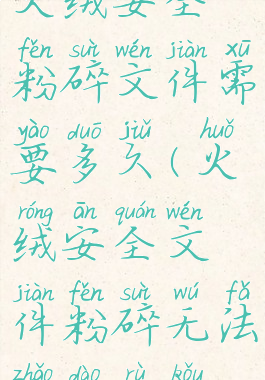 火绒安全
fěn suì wén jiàn xū
粉碎文件需
yào duō jiǔ huǒ
要多久(火
róng ān quán wén
绒安全文
jiàn fěn suì wú fǎ
件粉碎无法
zhǎo dào rù kǒu